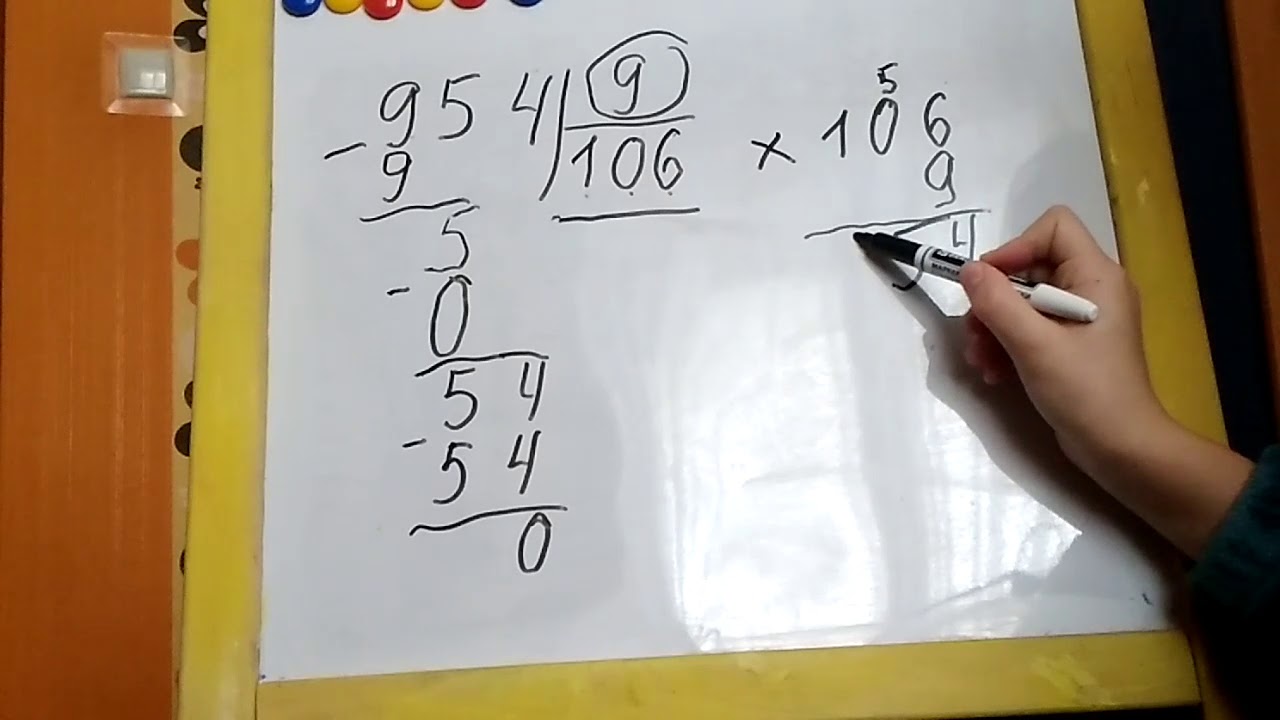 - 954 9
9 106
5
- 0
54
- 54
0
5
× 106
9
54